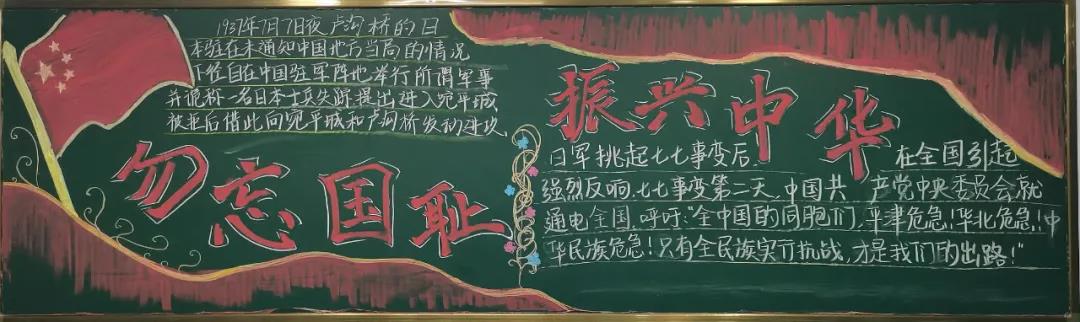 1937年7月7日夜卢沟桥的日
本驻在未通知中国地方当局的情况
下径自在中国驻军阵地举行所谓军事
并诡称一名日本士兵失踪提出进入宛平城
被拒后借此向宛平城和卢沟桥发动进攻
勿忘国耻
振兴中华
日军挑起七七事变后. 在全国引起
强烈反响,七七事变第二天,中国共产党中央委员会就
通电全国,呼吁:"全中国的同胞们,平津危急!华北危急!中
华民族危急!只有全民族实行抗战,才是我们的出路!"